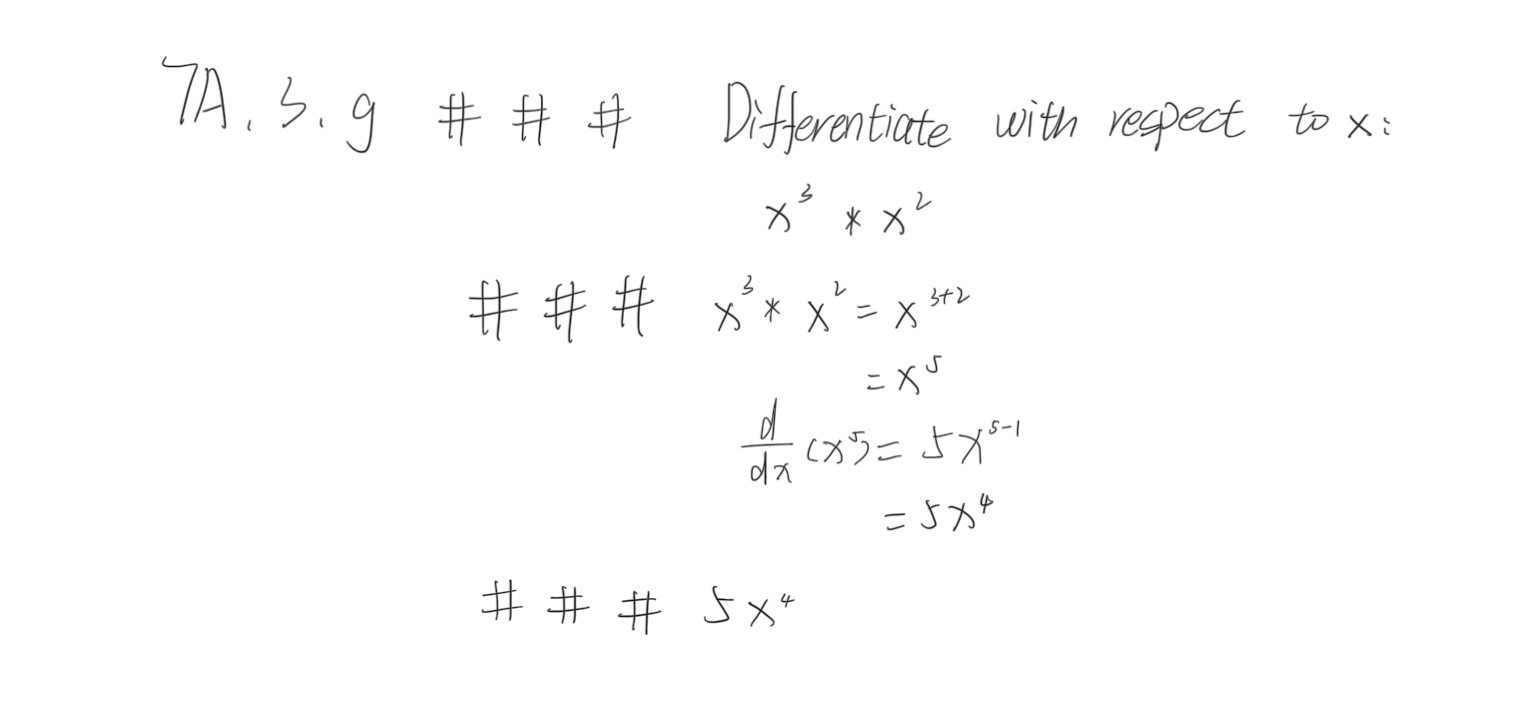 7A. 3. g # # # Differentiate with respect to x:
x³ * x²
# # # x³ * x² = x³⁺²
= x⁵
d/dx (x⁵) = 5x⁵⁻¹
= 5x⁴
# # # 5x⁴